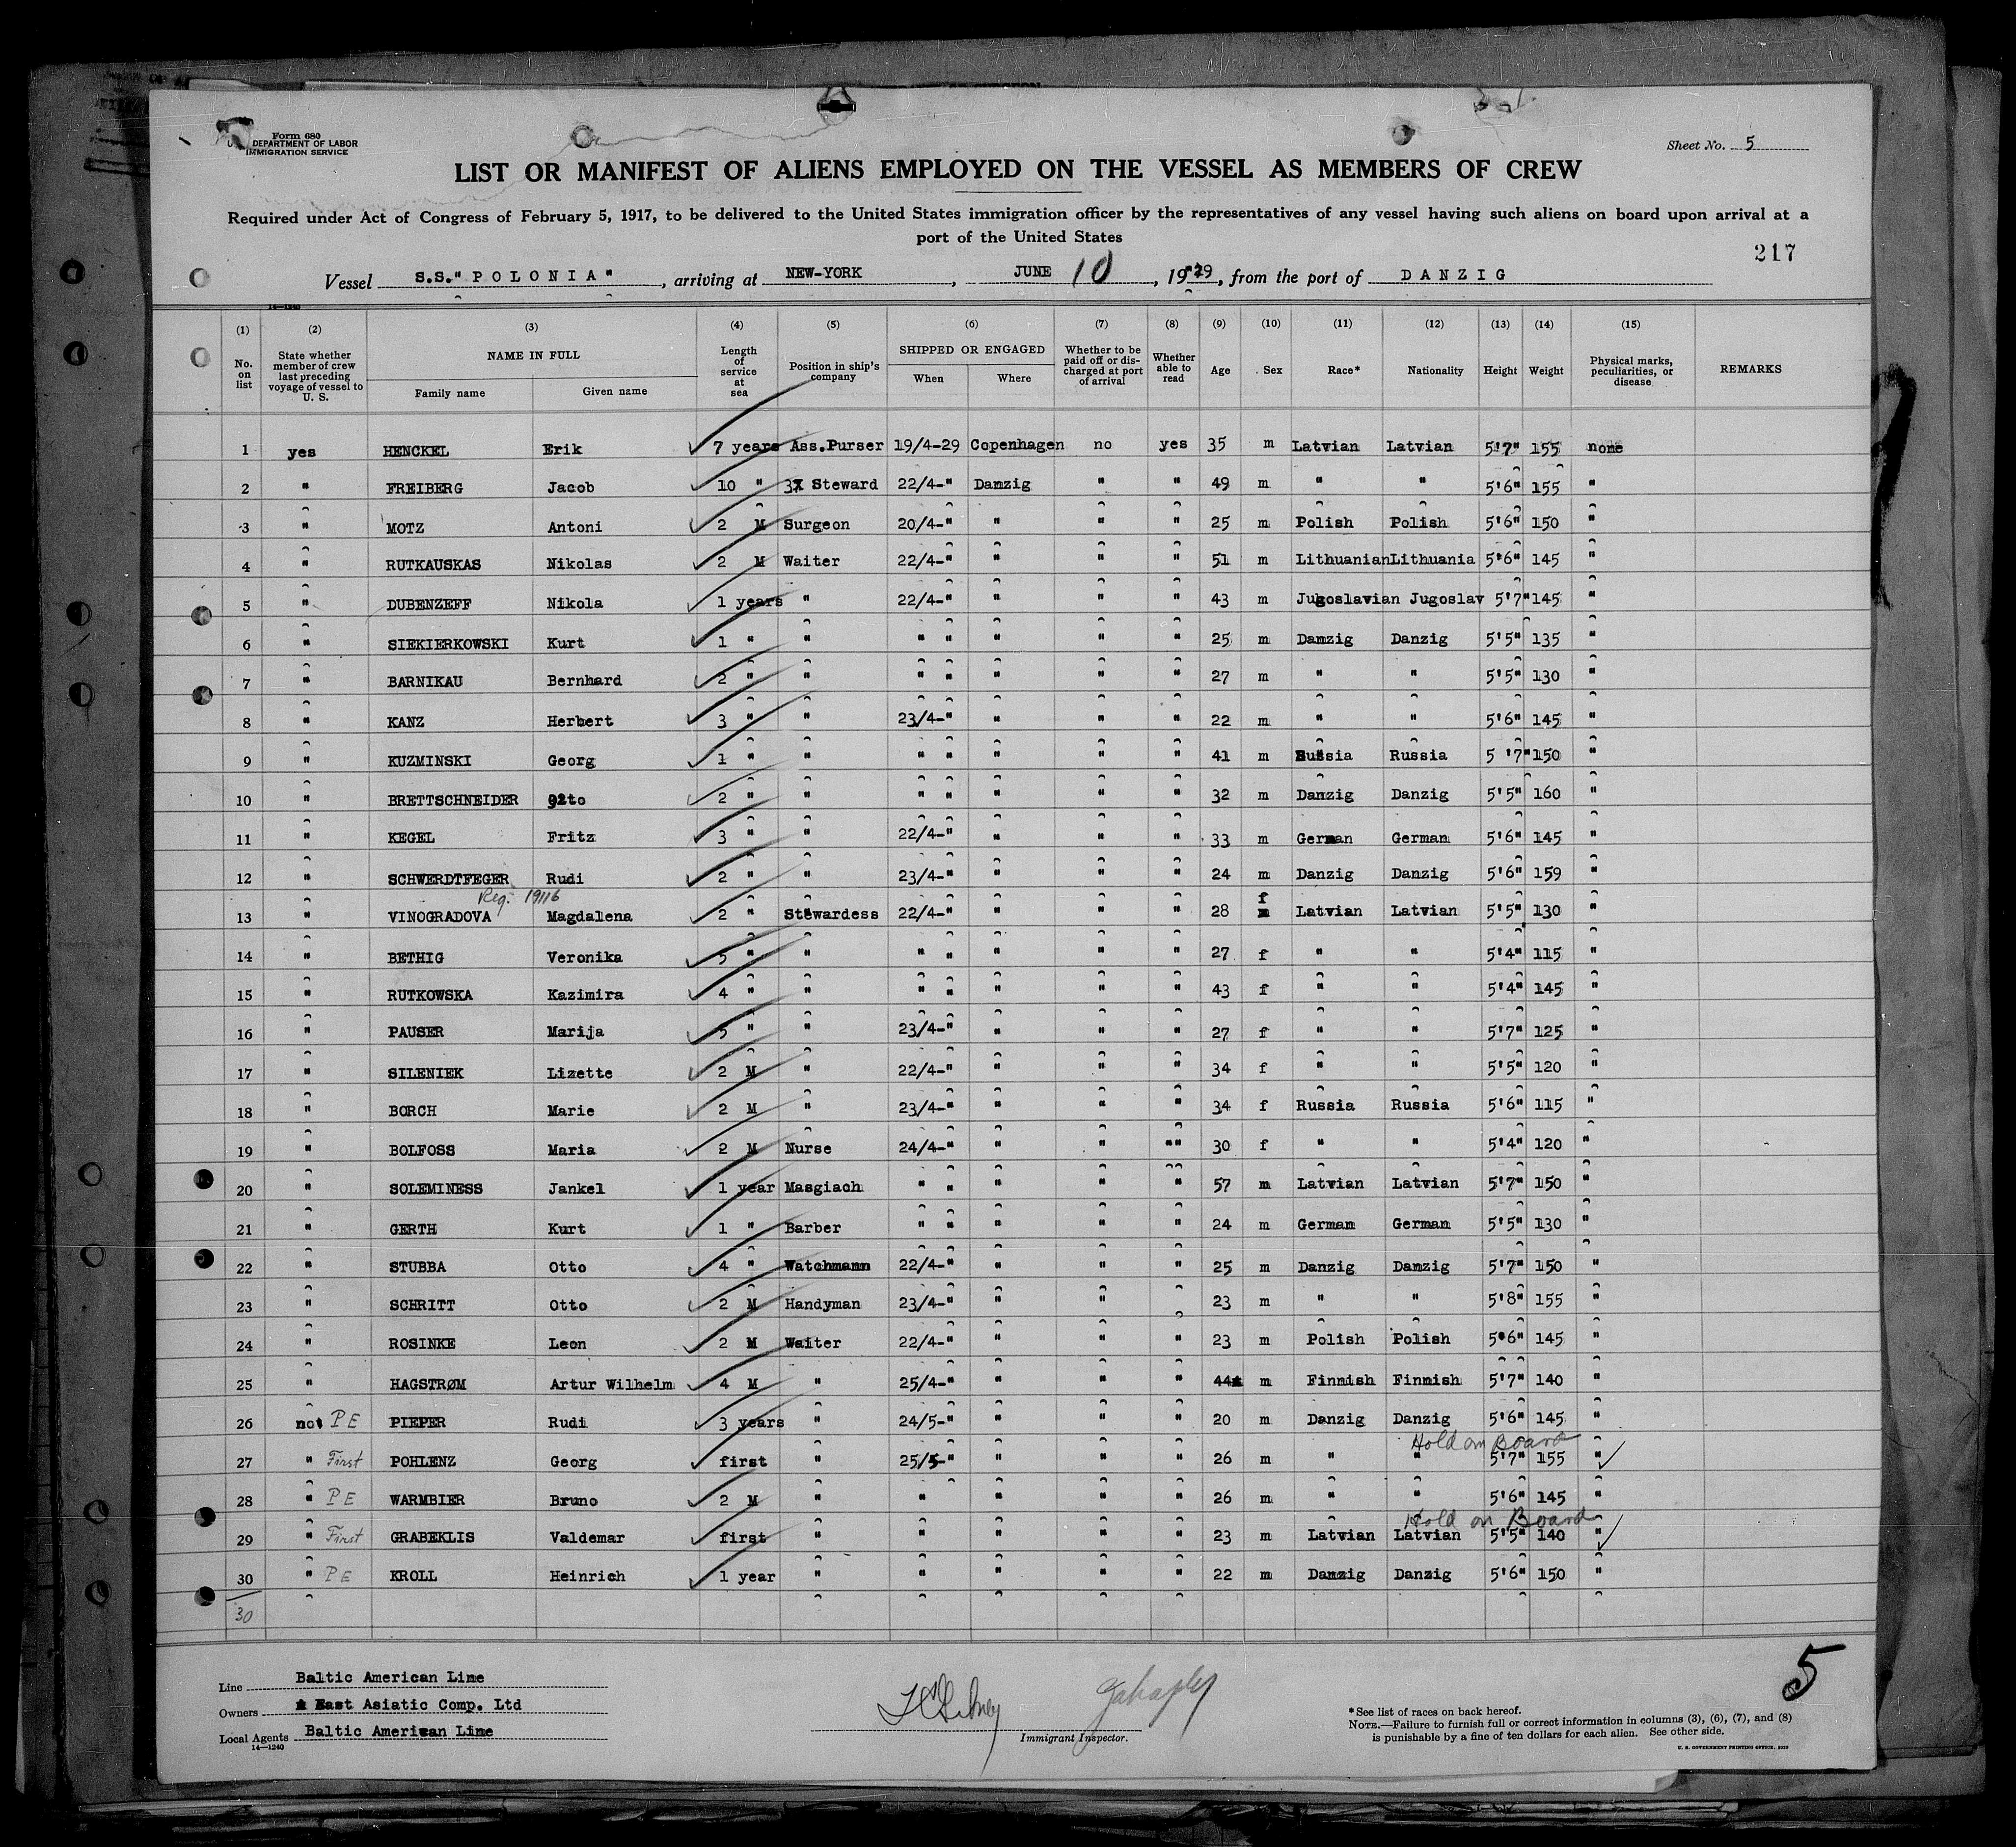 Form 680
DEPARTMENT OF LABOR
IMMIGRATION SERVICE
Sheet No. 5
LIST OR MANIFEST OF ALIENS EMPLOYED ON THE VESSEL AS MEMBERS OF CREW
Required under Act of Congress of February 5, 1917, to be delivered to the United States immigration officer by the representatives of any vessel having such aliens on board upon arrival at a
port of the United States
217
Vessel S.S."POLONIA", arriving at NEW-YORK, JUNE 10, 1929, from the port of DANZIG
14—1240
(1) (2) (3) (4) (5) (6) (7) (8) (9) (10) (11) (12) (13) (14) (15)
No. on list | State whether member of crew last preceding voyage of vessel to U. S. | NAME IN FULL | Family name | Given name | Length of service at sea | Position in ship's company | SHIPPED OR ENGAGED | When | Where | Whether to be paid off or discharged at port of arrival | Whether able to read | Age | Sex | Race* | Nationality | Height | Weight | Physical marks, peculiarities, or disease | REMARKS
1 yes HENCKEL Erik 7 years Ass.Purser 19/4-29 Copenhagen no yes 35 m Latvian Latvian 5'7" 155 none
2 " FREIBERG Jacob 10 " Steward 22/4-" Danzig " " 49 m " " 5'6" 155 "
3 " MOTZ Antoni 2 M Surgeon 20/4-" " " " 25 m Polish Polish 5'6" 150 "
4 " RUTKAUSKAS Nikolas 2 M Waiter 22/4-" " " " 51 m Lithuanian Lithuania 5'6" 145 "
5 " DUBENZEFF Nikola 1 years " 22/4-" " " " 43 m Jugoslavian Jugoslav 5'7" 145 "
6 " SIEKIERKOWSKI Kurt 1 " " " " " " " 25 m Danzig Danzig 5'5" 135 "
7 " BARNIKAU Bernhard 2 " " " " " " " 27 m " " 5'5" 130 "
8 " KANZ Herbert 3 " " 23/4-" " " " 22 m " " 5'6" 145 "
9 " KUZMINSKI Georg 1 " " " " " " " 41 m Russia Russia 5 '7" 150 "
10 " BRETTSCHNEIDER Otto 2 " " " " " " " 32 m Danzig Danzig 5'5" 160 "
11 " KEGEL Fritz 3 " " 22/4-" " " " 33 m German German 5'6" 145 "
12 " SCHWERDTFEGER Rudi 2 " " 23/4-" " " " 24 m Danzig Danzig 5'6" 159 "
Reg. 19116
13 " VINOGRADOVA Magdalena 2 " Stewardess 22/4-" " " " 28 f Latvian Latvian 5'5" 130 "
14 " BETHIG Veronika 5 " " " " " " " 27 f " " 5'4" 115 "
15 " RUTKOWSKA Kazimira 4 " " " " " " " 43 f " " 5'4" 145 "
16 " PAUSER Marija 5 " " 23/4-" " " " 27 f " " 5'7" 125 "
17 " SILENIEK Lizette 2 M " 22/4-" " " " 34 f " " 5'5" 120 "
18 " BORCH Marie 2 M " 23/4-" " " " 34 f Russia Russia 5'6" 115 "
19 " BOLFOSS Maria 2 M Nurse 24/4-" " " "" 30 f " " 5'4" 120 "
20 " SOLEMINESS Jankel 1 year Masgiach " " " " " 57 m Latvian Latvian 5'7" 150 "
21 " GERTH Kurt 1 " Barber " " " " " 24 m German German 5'5" 130 "
22 " STUBBA Otto 4 " Watchmann 22/4-" " " " 25 m Danzig Danzig 5'7" 150 "
23 " SCHRITT Otto 2 M Handyman 23/4-" " " " 23 m " " 5'8" 155 "
24 " ROSINKE Leon 2 M Waiter 22/4-" " " " 23 m Polish Polish 5'6" 145 "
25 " HAGSTRØM Artur Wilhelm 4 M " 25/4-" " " " 44 m Finnish Finnish 5'7" 140 "
26 not PE PIEPER Rudi 3 years " 24/5-" " " " 20 m Danzig Danzig 5'6" 145 "
Hold on Board
27 " First POHLENZ Georg first " 25/5-" " " " 26 m " " 5'7" 155 "
28 " PE WARMBIER Bruno 2 M " " " " " 26 m " " 5'6" 145 "
Hold on Board
29 " First GRABEKLIS Valdemar first " " " " " 23 m Latvian Latvian 5'5" 140 "
30 " PE KROLL Heinrich 1 year " " " " " 22 m Danzig Danzig 5'6" 150 "
30
5
Line Baltic American Line
Owners East Asiatic Comp. Ltd
Local Agents Baltic American Line
14—1240
Immigrant Inspector.
*See list of races on back hereof.
NOTE.—Failure to furnish full or correct information in columns (3), (6), (7), and (8)
is punishable by a fine of ten dollars for each alien. See other side.